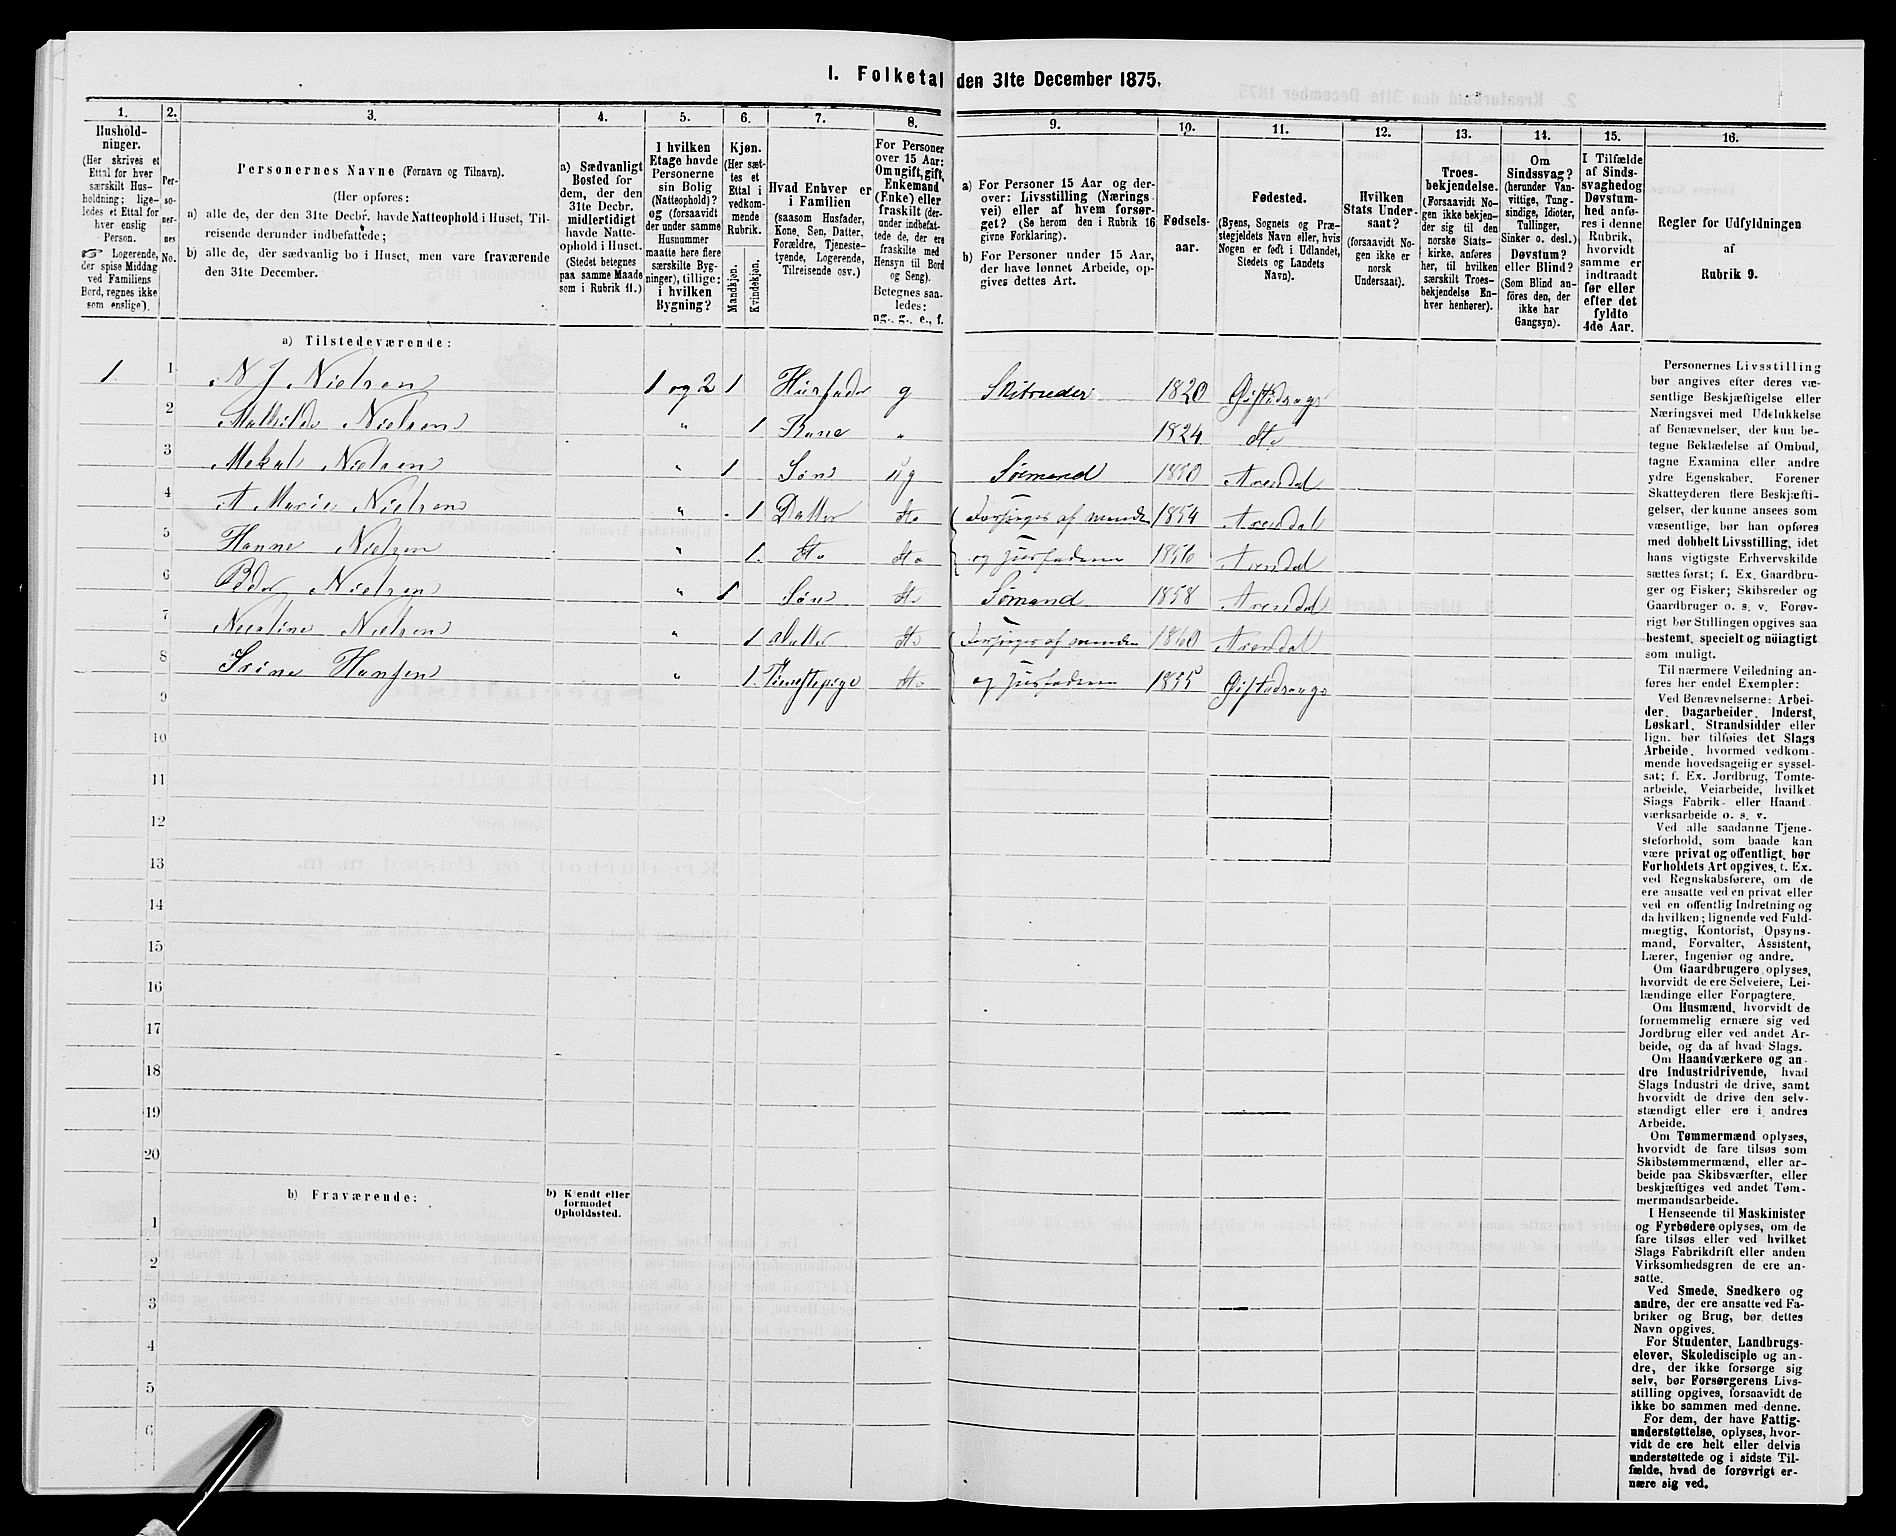 I. Folketal den 31te December 1875.
1.
Hushold-
ninger.
(Her skrives et
Ettal for hver
særskilt Hus-
holdning; lige-
ledes et Ettal for
hver enslig
Person.
Logerende,
der spise Middag
ved Familiens
Bord, regnes ikke
som enslige).
2.
Per-
so-
ner-
nes
No.
3.
Personernes Navne (Fornavn og Tilnavn).
(Her opføres:
a) alle de, der den 31te Decbr. havde Natteophold i Huset, Til-
reisende derunder indbefattede;
b) alle de, der sædvanlig bo i Huset, men vare fraværende
den 31te December.
4.
a) Sædvanligt
Bosted for
dem, der den
31te Decbr.
midlertidigt
havde Natte-
ophold i Huset.
(Stedet betegnes
paa samme Maade
som i Rubrik 11.)
5.
I hvilken
Etage havde
Personerne
sin Bolig
(Natteophold)?
og (forsaavidt
der under samme
Husnummer
maatte høre flere
særskilte Byg-
ninger), tillige:
i hvilken
Bygning?
6.
Kjøn.
(Her sæt-
tes et
Ettal i
vedkom-
mende
Rubrik.
Mandkjøn.
Kvindekjøn.
7.
Hvad Enhver er
i Familien
(saasom Husfader,
Kone, Søn, Datter,
Forældre, Tjeneste-
tyende, Logerende,
Tilreisende osv.)
8.
For Personer
over 15 Aar:
Om ugift, gift,
Enkemand
(Enke) eller
fraskilt (der-
under indbefat-
tede de, der ere
fraskilte med
Hensyn til Bord
og Seng).
Betegnes saa-
ledes:
ug., g., e., f.
9.
a) For Personer 15 Aar og der-
over: Livsstilling (Nærings
vei) eller af hvem forsør-
get? (Se herom den i Rubrik 16
givne Forklaring).
b) For Personer under 15 Aar,
der have lønnet Arbeide, op-
gives dettes Art.
10.
Fødsels-
aar.
11.
Fødested.
(Byens, Sognets og Præ-
stegjeldets Navn eller, hvis
Nogen er født i Udlandet,
Stedets og Landets
Navn).
12.
Hvilken
Stats Under-
saat?
(forsaavidt No-
gen ikke er
norsk
Undersaat).
13.
Troes-
bekjendelse.
(Forsaavidt No-
gen ikke bekjen-
der sig til den
norske Stats-
kirke, anføres
her, til hvilken
særskilt Troes-
bekjendelse En-
hver henhører).
14.
Om
Sindssvag?
(herunder Van-
vittige, Tung-
sindige, Idioter,
Tullinger,
Sinker o. desl.)
Døvstum?
eller Blind?
(Som Blind an-
føres den, der
ikke har
Gangsyn).
15.
I Tilfælde
af Sinds-
svaghed og
Døvstum-
hed anfø-
res i denne
Rubrik,
hvorvidt
samme er
indtraadt
før eller
efter det
fyldte
4de Aar.
16.
Regler for Udfyldningen
af
Rubrik 9.
a) Tilstedeværende:
1. 1 N J Nielsen 1 og 2 1 Husfader g Skibsreder 1820 Øjestedsogn
2 Mathilde Nielsen " 1 Kone " 1824 dto
3 Mekal Nielsen " 1 Søn ug Sømand 1850 Arendal
4 A Marie Nielsen " 1 Datter dto Forsørges af manden 1854 Arendal
5 Hanne Nielsen " 1. dto dto og Husfaderen 1856 Arendal
6 Peder Nielsen " 1 Søn dto Sømand 1858 Arendal
7 Nicoline Nielsen " 1. datter dto Forsørges af manden 1860 Arendal
8 Trine Hansen " 1. Tienestepige dto og Husfaderen 1855 Øjestedsogn
9
10
11
12
13
14
15
16
17
18
19
20
b) Fraværende:
b) Kjendt eller
formodet
Opholdssted.
1
2
3
4
5
6
Personernes Livsstilling
bør angives efter deres væ-
sentlige Beskjæftigelse eller
Næringsvei med Udelukkelse
af Benævnelser, der kun be-
tegne Beklædelse af Ombud,
tagne Examina eller andre
ydre Egenskaber. Forener
Skatteyderen flere Beskjæfti-
gelser, der kunne ansees som
væsentlige, bør han opføres
med dobbelt Livsstilling, idet
hans vigtigste Erhvervskilde
sættes først; f. Ex. Gaardbru-
ger og Fisker; Skibsreder og
Gaardbruger o. s. v. Forøv-
rigt bør Stillingen opgives saa
bestemt, specielt og nöiagtigt
som muligt.
Til nærmere Veiledning an-
føres her endel Exempler:
Ved Benævnelserne: Arbei-
der, Dagarbeider, Inderst,
Løskarl, Strandsidder eller
lign. bør tilføies det Slags
Arbeide, hvormed vedkom-
mende hovedsagelig er syssel-
sat; f. Ex. Jordbrug, Tomte-
arbeide, Veiarbeide, hvilket
Slags Fabrik- eller Haand
værksarbeide o. s. v.
Ved alle saadanne Tjene-
steforhold, som baade kan
være privat og offentligt, bør
Forholdets Art opgives, f. Ex.
ved Regnskabsførere, om de
ere ansatte ved en privat eller
ved en offentlig Indretning og
da hvilken; lignende ved Fuld-
mægtig, Kontorist, Opsyns-
mand, Forvalter, Assistent,
Lærer, Ingeniør og andre.
Om Gaardbrugere oplyses,
hvorvidt de ere Selveiere, Lei-
lændinge eller Forpagtere.
Om Husmænd, hvorvidt de
fornemmelig ernære sig ved
Jordbrug eller ved andet Ar-
beide, og da af hvad Slags.
Om Haandværkere og an-
dre Industridrivende, hvad
Slags Industri de drive, samt
hvorvidt de drive den selv-
stændigt eller ere i andres
Arbeide.
Om Tømmermænd oplyses,
hvorvidt de fare tilsøs som
Skibstømmermænd, eller ar-
beide paa Skibsværfter, eller
beskjæftiges ved andet Tøm-
mermandsarbeide.
I Henseende til Maskinister
og Fyrbødere oplyses, om de
fare tilsøs eller ved hvilket
Slags Fabrikdrift eller anden
Virksomhedsgren de ere an-
satte.
Ved Smede, Snedkere og
andre, der ere ansatte ved Fa-
briker og Brug, bør dettes
Navn opgives.
For Studenter, Landbrugs-
elever, Skoledisciple og an-
dre, der ikke forsørge sig
selv, bør Forsørgerens Livs-
stilling opgives, forsaavidt de
ikke bo sammen med denne.
For dem, der have Fattig-
understøttelse, oplyses, hvor-
vidt de ere helt eller delvis
understøttede og i sidste Til-
fælde, hvad de forøvrigt er-
nære sig ved.